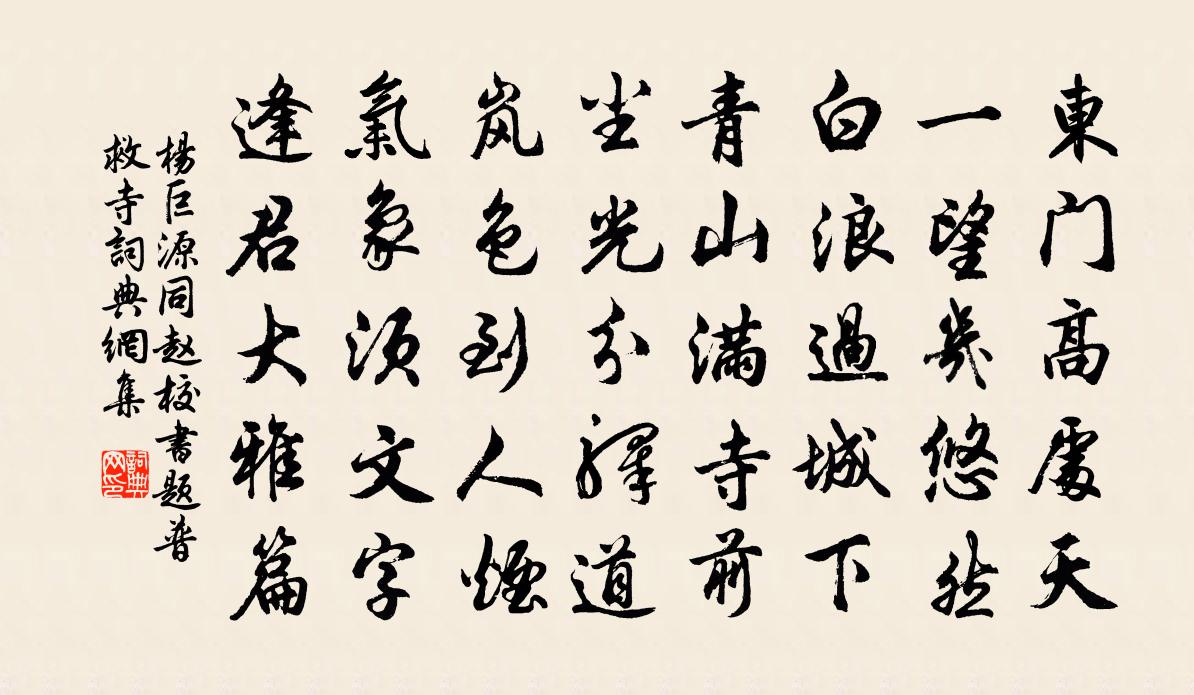 東门高處天
一望幾悠然
白浪過城下
青山滿寺前
尘光分驛道
岚色到人煙
氣象须文字
逢君大雅篇
楊巨源同赵校書題普
救寺詞典網集
詞典
网印